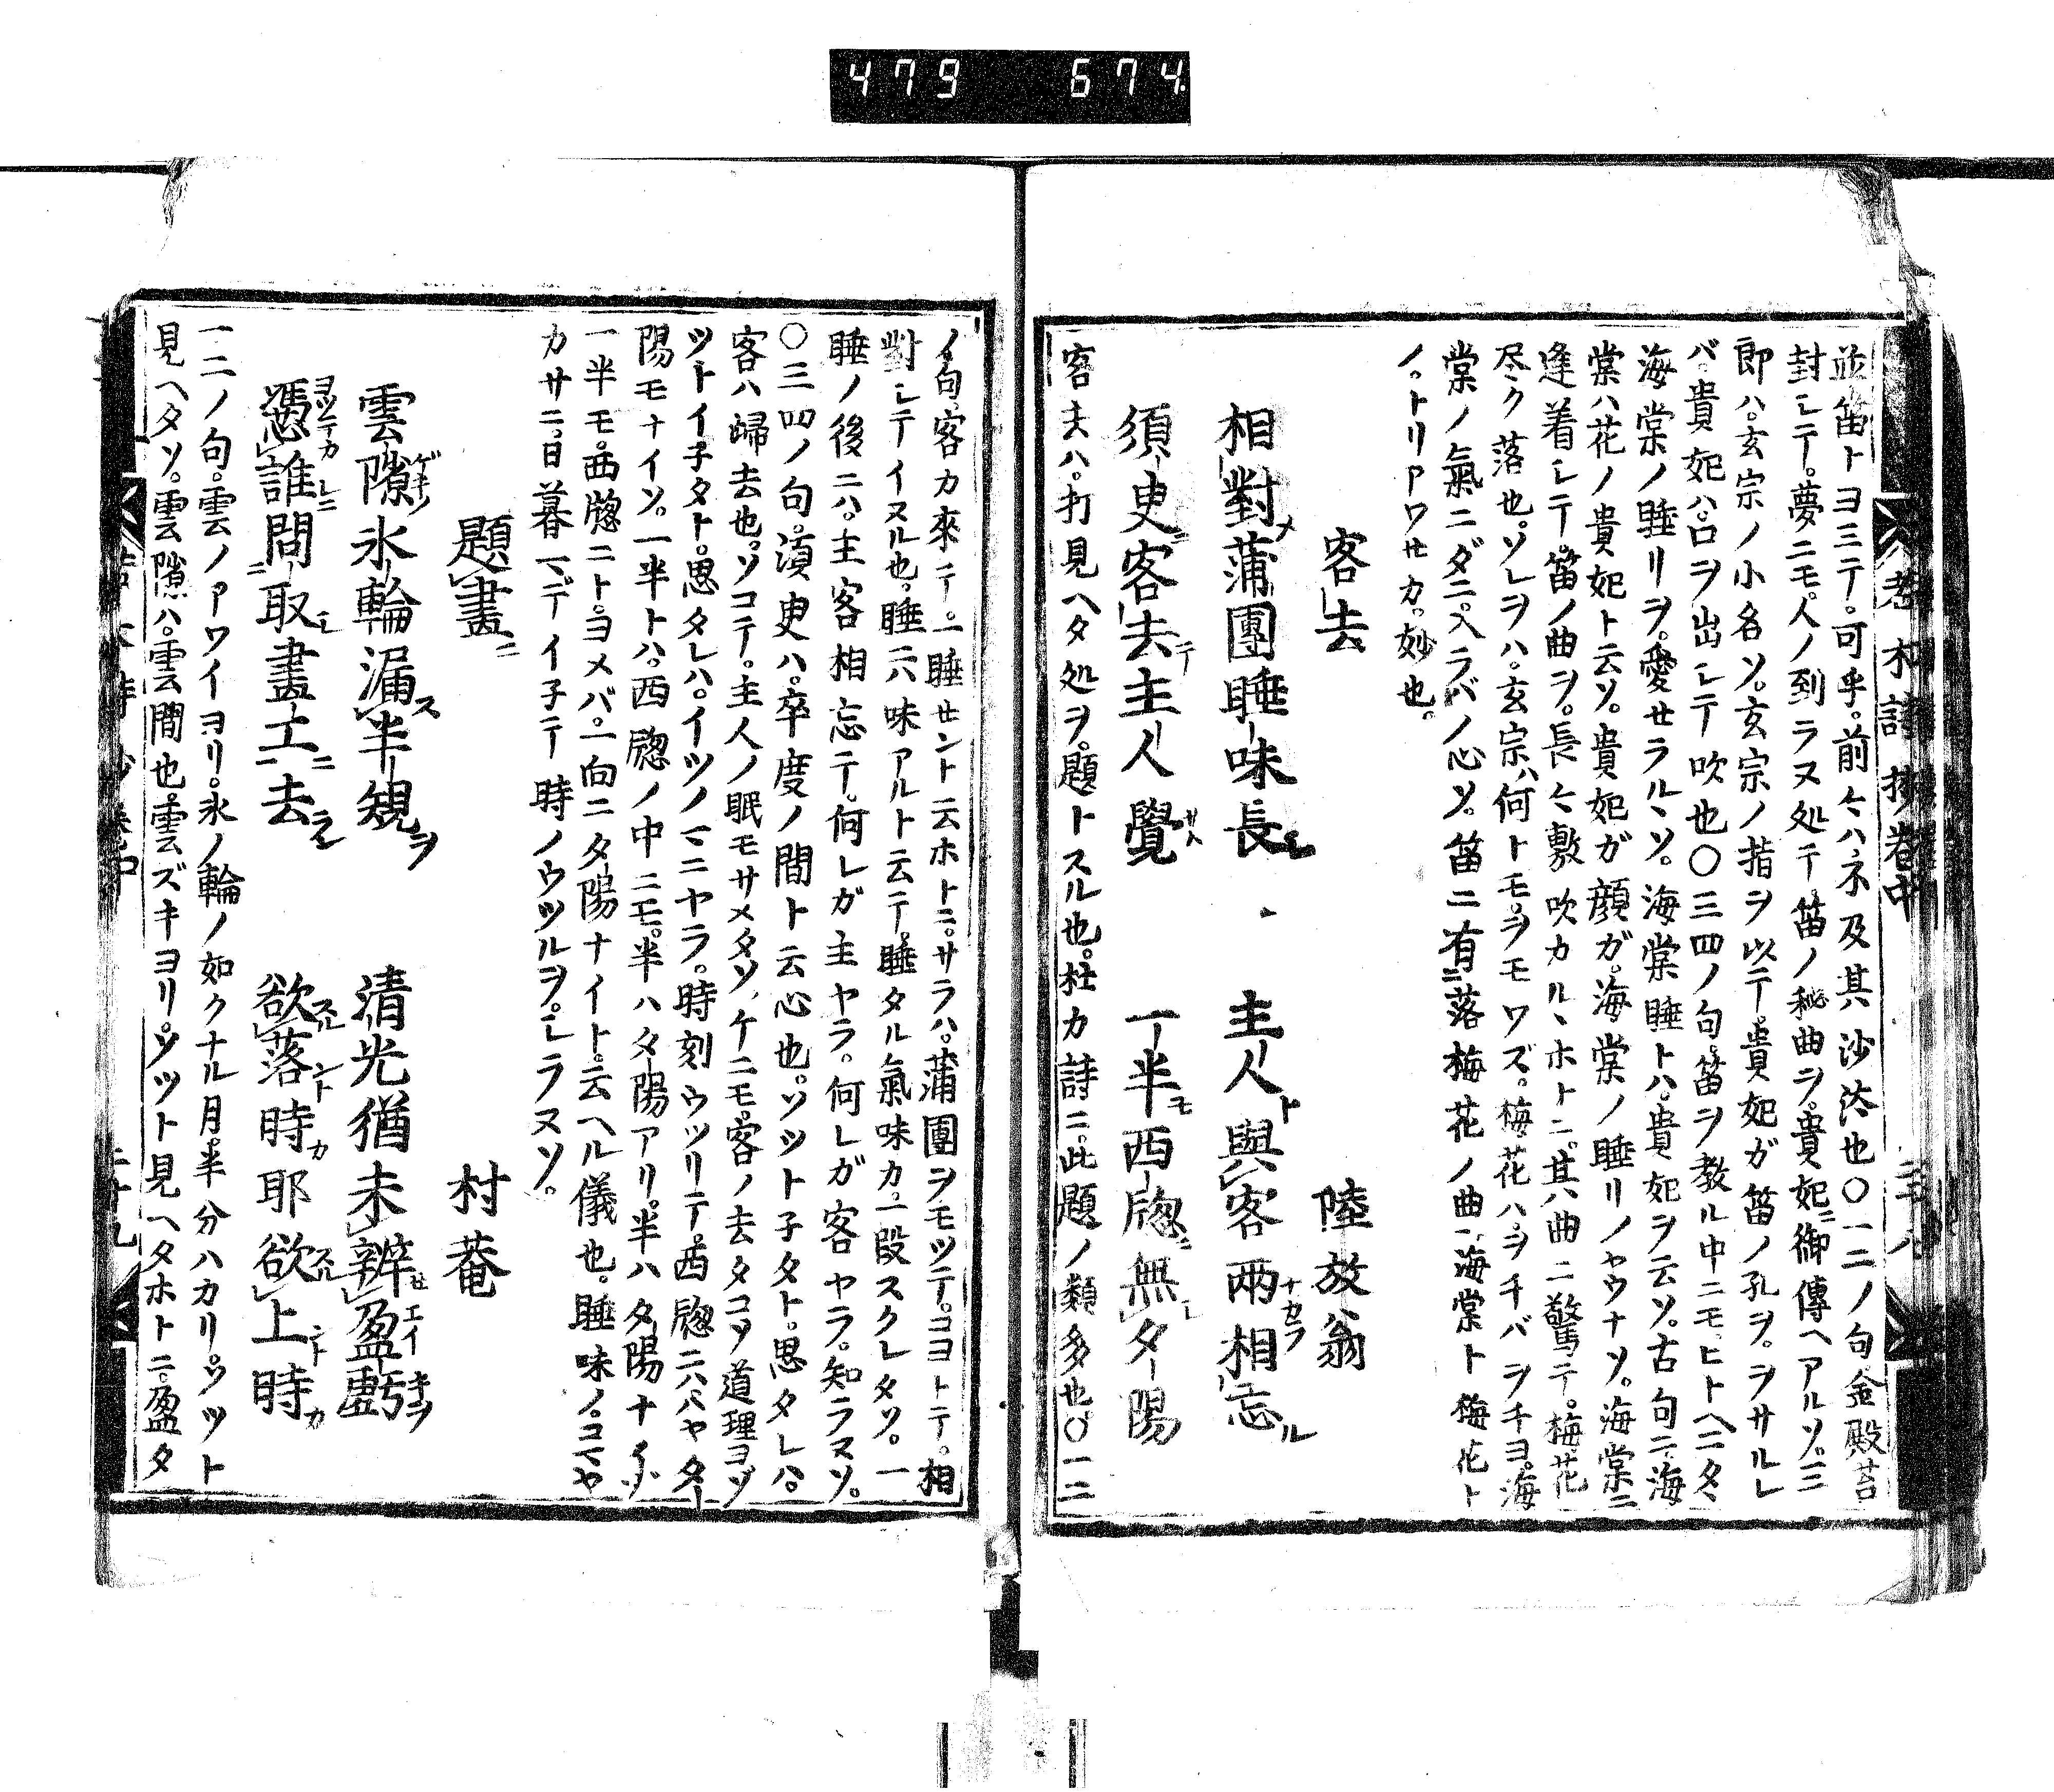 479 674
並笛トヨミテ。可乎。前々ハ不及其沙汰也〇一二ノ句金殿苔
封シテ。夢ニモ。人ノ到ラヌ処テ。笛ノ秘曲ヲ。貴妃ニ御傳ヘアルソ。三
郎ハ。玄宗ノ小名ソ。玄宗ノ指ヲ以テ。貴妃ガ笛ノ孔ヲ。ヲサルレ
バ。貴妃ハ。口ヲ出シテ吹也〇三四ノ句。笛ヲ教ル中ニモ。ヒトヘニタヽ
海棠ノ睡リヲ。愛セラルヽソ。海棠睡トハ。貴妃ヲ云ソ。古句ニ。海
棠ハ花ノ貴妃ト云ソ。貴妃ガ顔ガ。海棠ノ睡リノヤウナソ。海棠ニ
逢着シテ。笛ノ曲ヲ。長々敷吹カルヽホトニ。其曲ニ驚テ。梅花
尽ク落也。ソレヲハ。玄宗ハ何トモ。ヲモワズ。梅花ハ。ヲチバヲチヨ。海
棠ノ氣ニダニ。入ラバノ心ソ。笛ニ有落梅花ノ曲。海棠ト梅花ト
ノ。トリアワセカ。妙也。
客去 陸放翁
相對蒲團睡味長 主人與客兩相忘
須臾客去主人覺 一半西牕無夕陽
客去ハ。打見ヘタ処ヲ。題トスル也。杜カ詩ニ。此題ノ類多也。〇一二
ノ句。客カ來テ。一睡セント云ホトニ。サラハ。蒲團ヲモツテ。コヨトテ。相
對シテイヌル也。睡ニ六味アルト云テ。睡タル氣味カ。一段スクレタソ。一
睡ノ後ニハ。主客相忘テ。何レガ主ヤラ。何レガ客ヤラ。知ラヌソ。
〇三四ノ句。須臾ハ。卒度ノ間ト云心也。ソツト子タト。思タレハ。
客ハ歸去也。ソコテ。主人ノ眠モサメタソ、ケニモ。客ノ去タコソ道理ヨ。ソ
ツトイ子タト。思タレハ。イツノマニヤラ。時刻ウツリテ。西牕ニハ。ハヤ夕
陽モナイソ。一半トハ。西牕ノ中ニモ。半ハ夕陽アリ。半ハ夕陽ナイソ
一半モ。西牕ニト。ヨメバ。一向ニ夕陽ナイト。云ヘル儀也。睡味ノ。コマヤ
カサニ。日暮マデイ子テ時ノウツルヲ。シラヌソ。
題畫 村菴
雲隙氷輪漏半規 清光猶未辨盈虧
憑誰問取畫工去 欲落時耶欲上時
一二ノ句。雲ノアワイヨリ。氷ノ輪ノ如クナル月。半分ハカリ。ツツト
見ヘタソ。雲隙ハ。雲間也。雲ズキヨリ。ツツト見ヘタホトニ。盈タ